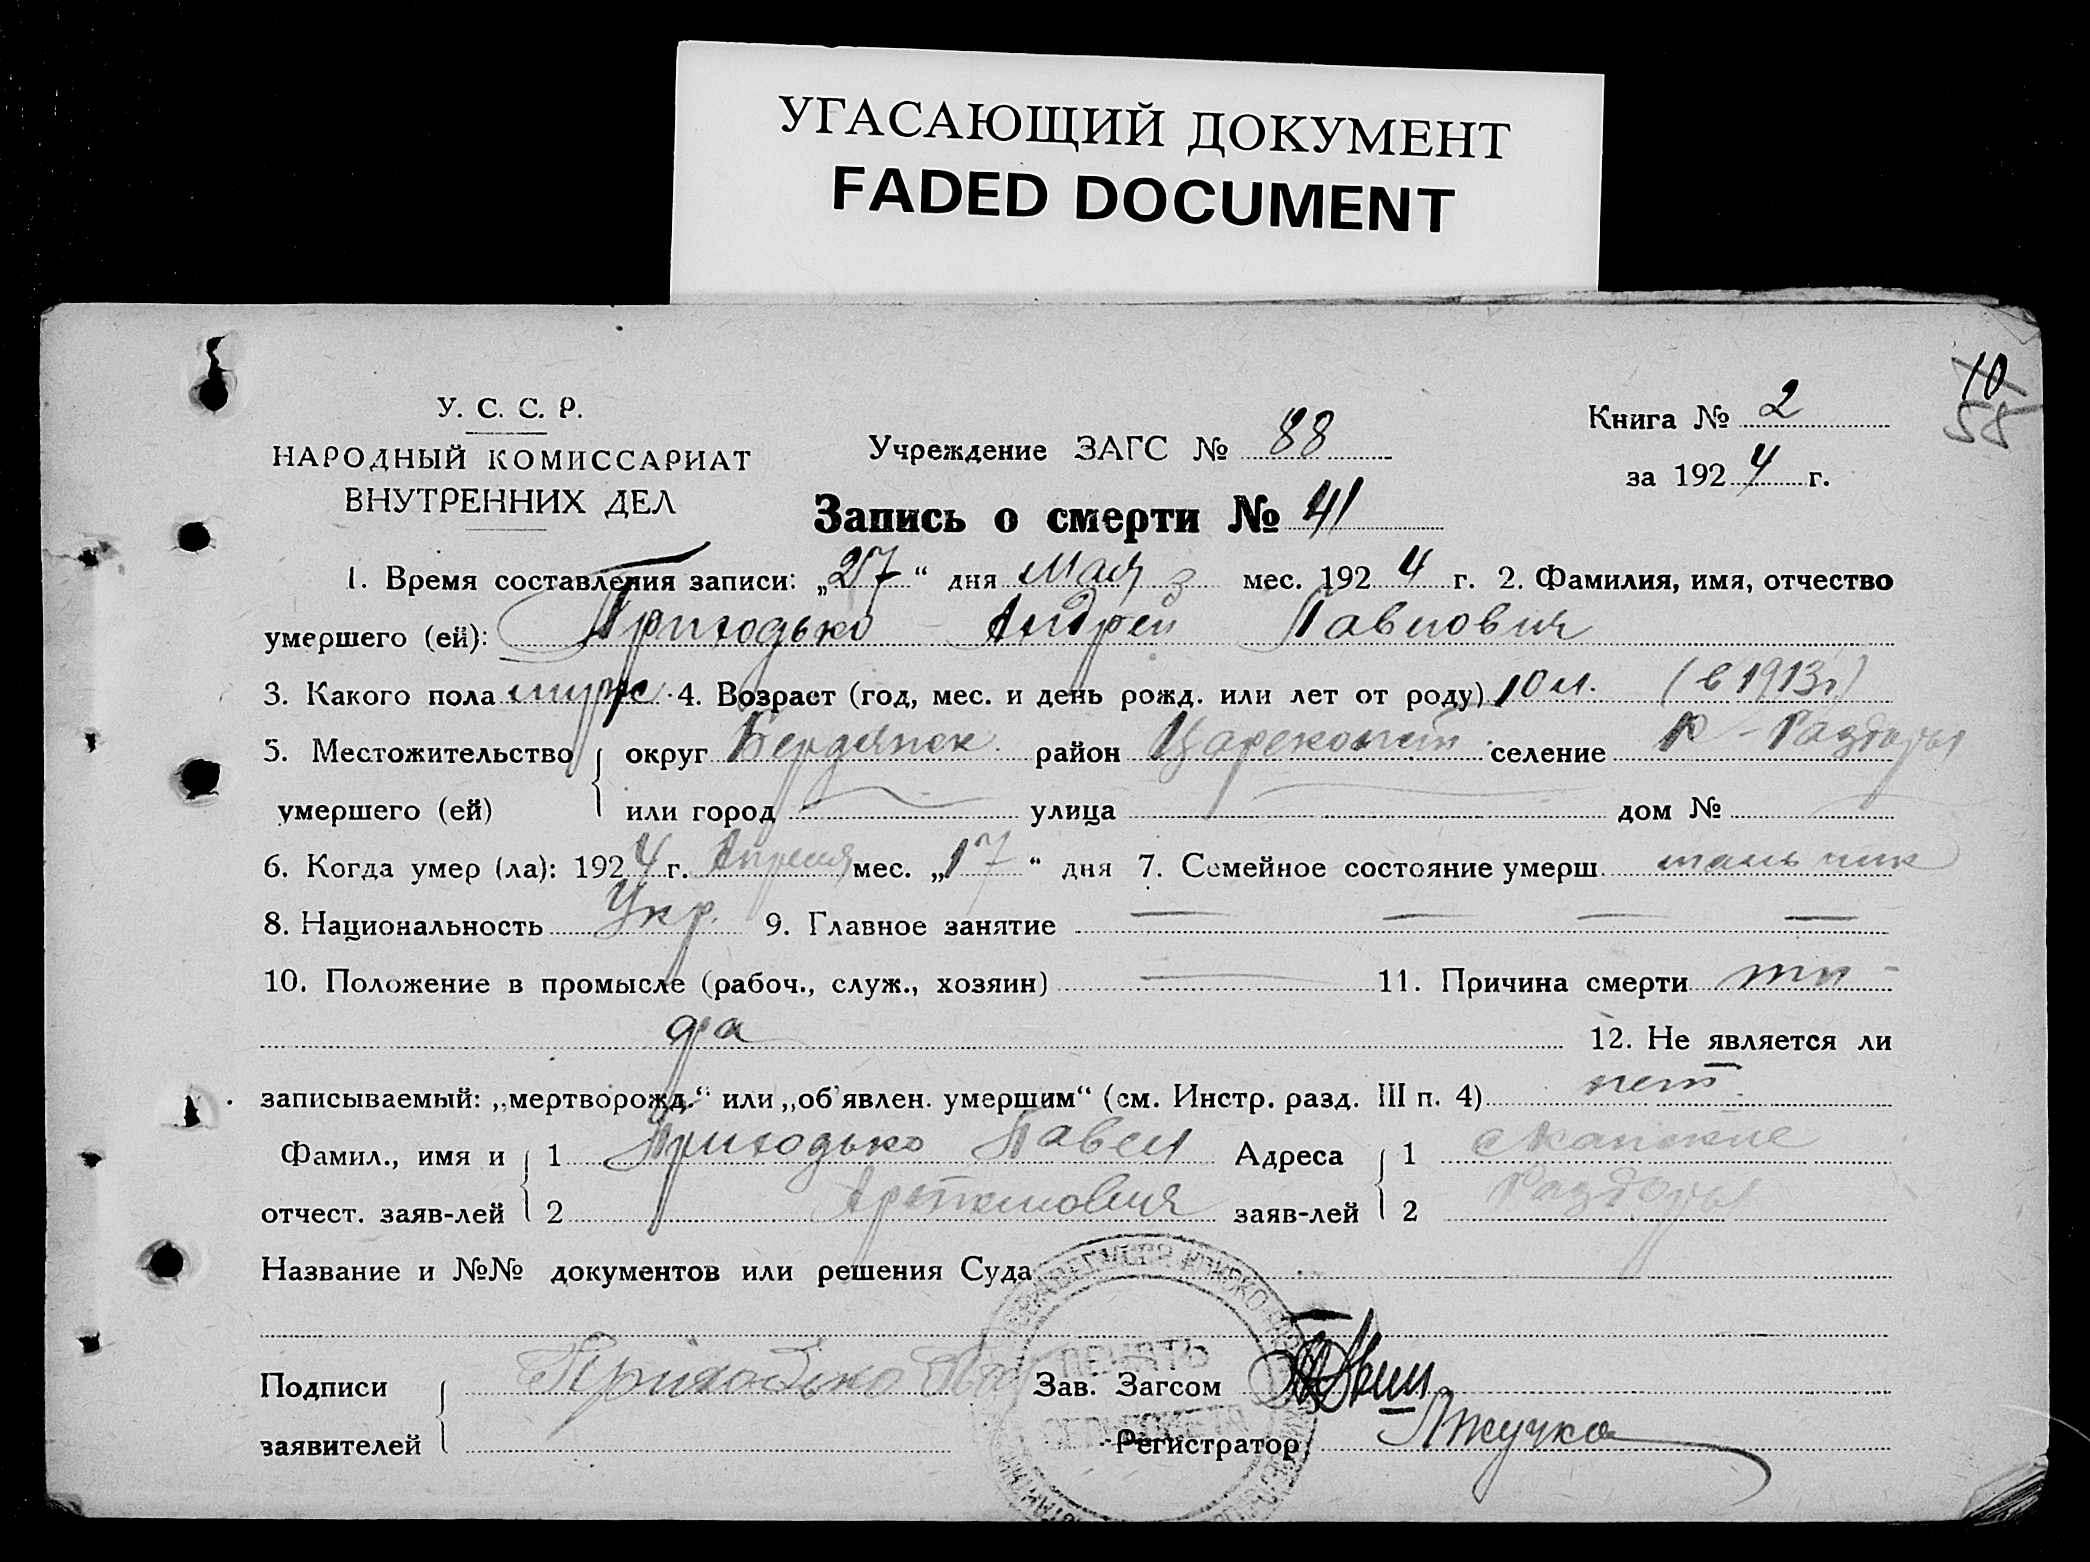 УГАСАЮЩИЙ ДОКУМЕНТ
FADED DOCUMENT
10
58
У. С. С. Р.
НАРОДНЫЙ КОМИССАРИАТ
ВНУТРЕННИХ ДЕЛ
Учреждение ЗАГС № 88
Книга № 2
за 1924 г.
Запись о смерти № 41
1. Время составления записи: „27“ дня Мая мес. 1924 г. 2. Фамилия, имя, отчество
умершего (ей): Приходько Андрей Павлович
3. Какого пола муж 4. Возраст (год, мес. и день рожд. или лет от роду) 10 л. (в 1913 г)
5. Местожительство округ Бердянск район Цареконст. селение К-Раздоры
умершего (ей) или город улица дом №
6. Когда умер (ла): 1924 г. Апреля мес. „17“ дня 7. Семейное состояние умерш.
8. Национальность Укр. 9. Главное занятие — — — —
10. Положение в промысле (рабоч., служ., хозяин) — 11. Причина смерти
12. Не является ли
записываемый: „мертворожд.“ или „об'явлен. умершим“ (см. Инстр. разд. III п. 4) нет
Фамил., имя и 1 Приходько Павел Адреса 1
отчест. заяв-лей 2 Артемович заяв-лей 2 Раздоры
Название и №№ документов или решения Суда
Подписи Приходько Зав. Загсом
заявителей Регистратор
ПЕЧАТЬ
СЕЛЬСОВЕТА